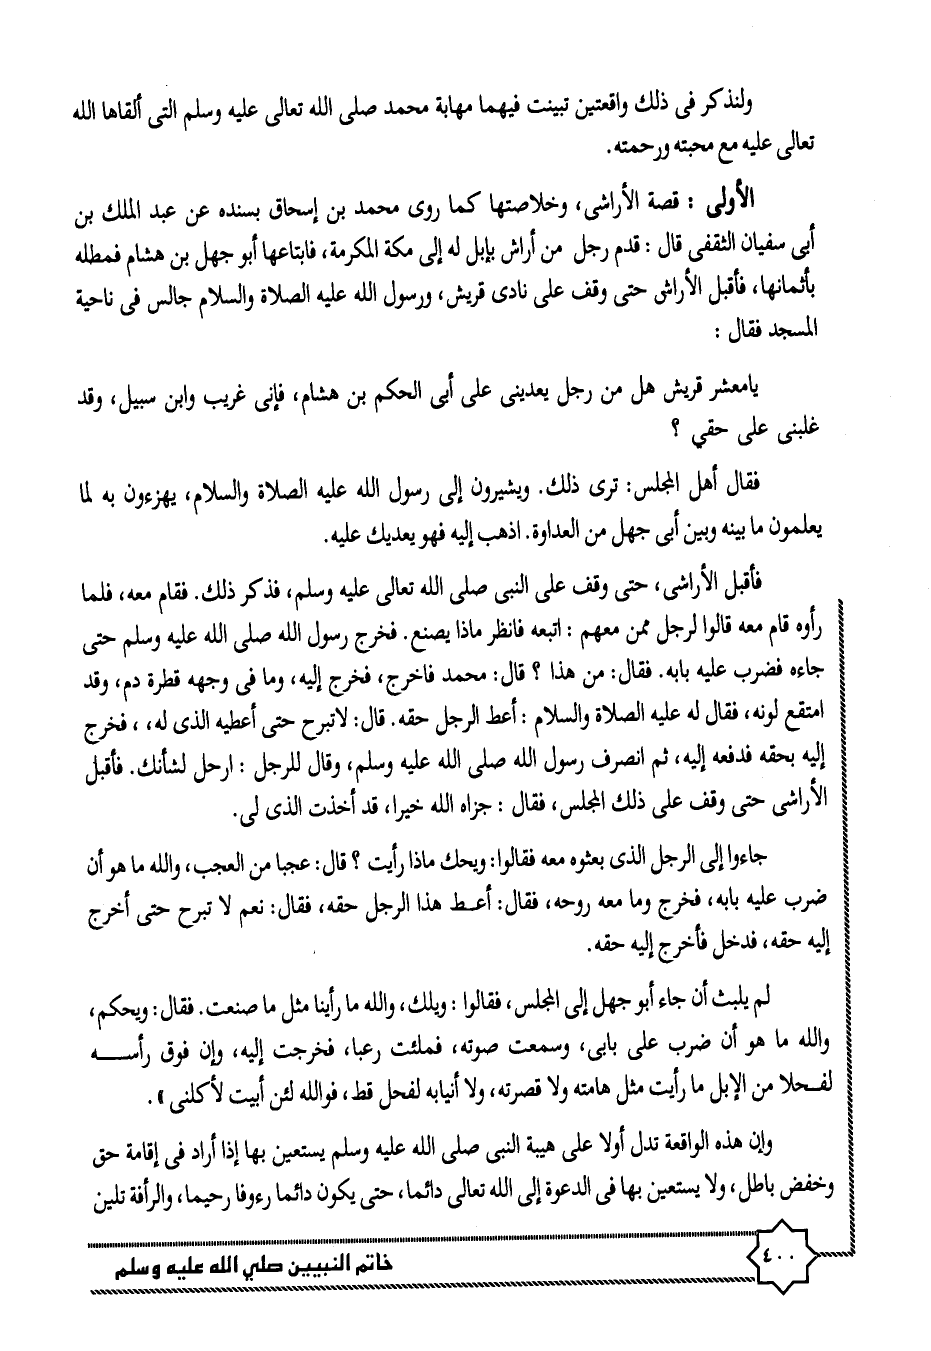 ولنذكر فى ذلك واقعتين تبينت فيهما مهابة محمد صلى الله تعالى عليه وسلم التى ألقاها الله
تعالى عليه مع محبته ورحمته.
الأولى : قصة الأراشى، وخلاصتها كما روى محمد بن إسحاق بسنده عن عبد الملك بن
أبى سفيان الثقفى قال : قدم رجل من أراش بإبل له إلى مكة المكرمة، فابتاعها أبو جهل بن هشام فمطله
بأثمانها، فأقبل الأراش حتى وقف على نادى قريش، ورسول الله عليه الصلاة والسلام جالس فى ناحية
المسجد فقال :
يامعشر قريش هل من رجل يعدينى على أبى الحكم بن هشام، فإنى غريب وابن سبيل، وقد
غلبنى على حقي ؟
فقال أهل المجلس: ترى ذلك. ويشيرون إلى رسول الله عليه الصلاة والسلام، يهزءون به لما
يعلمون ما بينه وبين أبى جهل من العداوة. اذهب إليه فهو يعديك عليه.
فأقبل الأراشى، حتى وقف على النبى صلى الله تعالى عليه وسلم، فذكر ذلك. فقام معه، فلما
رأوه قام معه قالوا لرجل ممن معهم : اتبعه فانظر ماذا يصنع. فخرج رسول الله صلى الله عليه وسلم حتى
جاءه فضرب عليه بابه. فقال: من هذا ؟ قال: محمد فاخرج، فخرج إليه، وما فى وجهه قطرة دم، وقد
امتقع لونه، فقال له عليه الصلاة والسلام : أعط الرجل حقه. قال: لاتبرح حتى أعطيه الذى له، ، فخرج
إليه بحقه فدفعه إليه، ثم انصرف رسول الله صلى الله عليه وسلم، وقال للرجل : ارحل لشأنك. فأقبل
الأراشى حتى وقف على ذلك المجلس، فقال : جزاه الله خيرا، قد أخذت الذى لى.
جاءوا إلى الرجل الذى بعثوه معه فقالوا: ويحك ماذا رأيت ؟ قال: عجبا من العجب، والله ما هو أن
ضرب عليه بابه، فخرج وما معه روحه، فقال: أعـط هذا الرجل حقه، فقال: نعم لا تبرح حتى أخرج
إليه حقه، فدخل فأخرج إليه حقه.
لم يلبث أن جاء أبو جهل إلى المجلس، فقالوا : ويلك، والله ما رأينا مثل ما صنعت. فقال: ويحكم،
والله ما هو أن ضرب على بابى، وسمعت صوته، فملئت رعبا، فخرجت إليه، وإن فوق رأســـه
لفـحلا من الإبل ما رأيت مثل هامته ولا قصرته، ولا أنيابه لفحل قط، فوالله لئن أبيت لأكلنى ».
وإن هذه الواقعة تدل أولا على هيبة النبى صلى الله عليه وسلم يستعين بها إذا أراد فى إقامة حق
وخفض باطل، ولا يستعين بها فى الدعوة إلى الله تعالى دائما، حتى يكون دائما رءوفا رحيما، والرأفة تلين
٤٠٠
خاتم النبيين صلي الله عليه وسلم